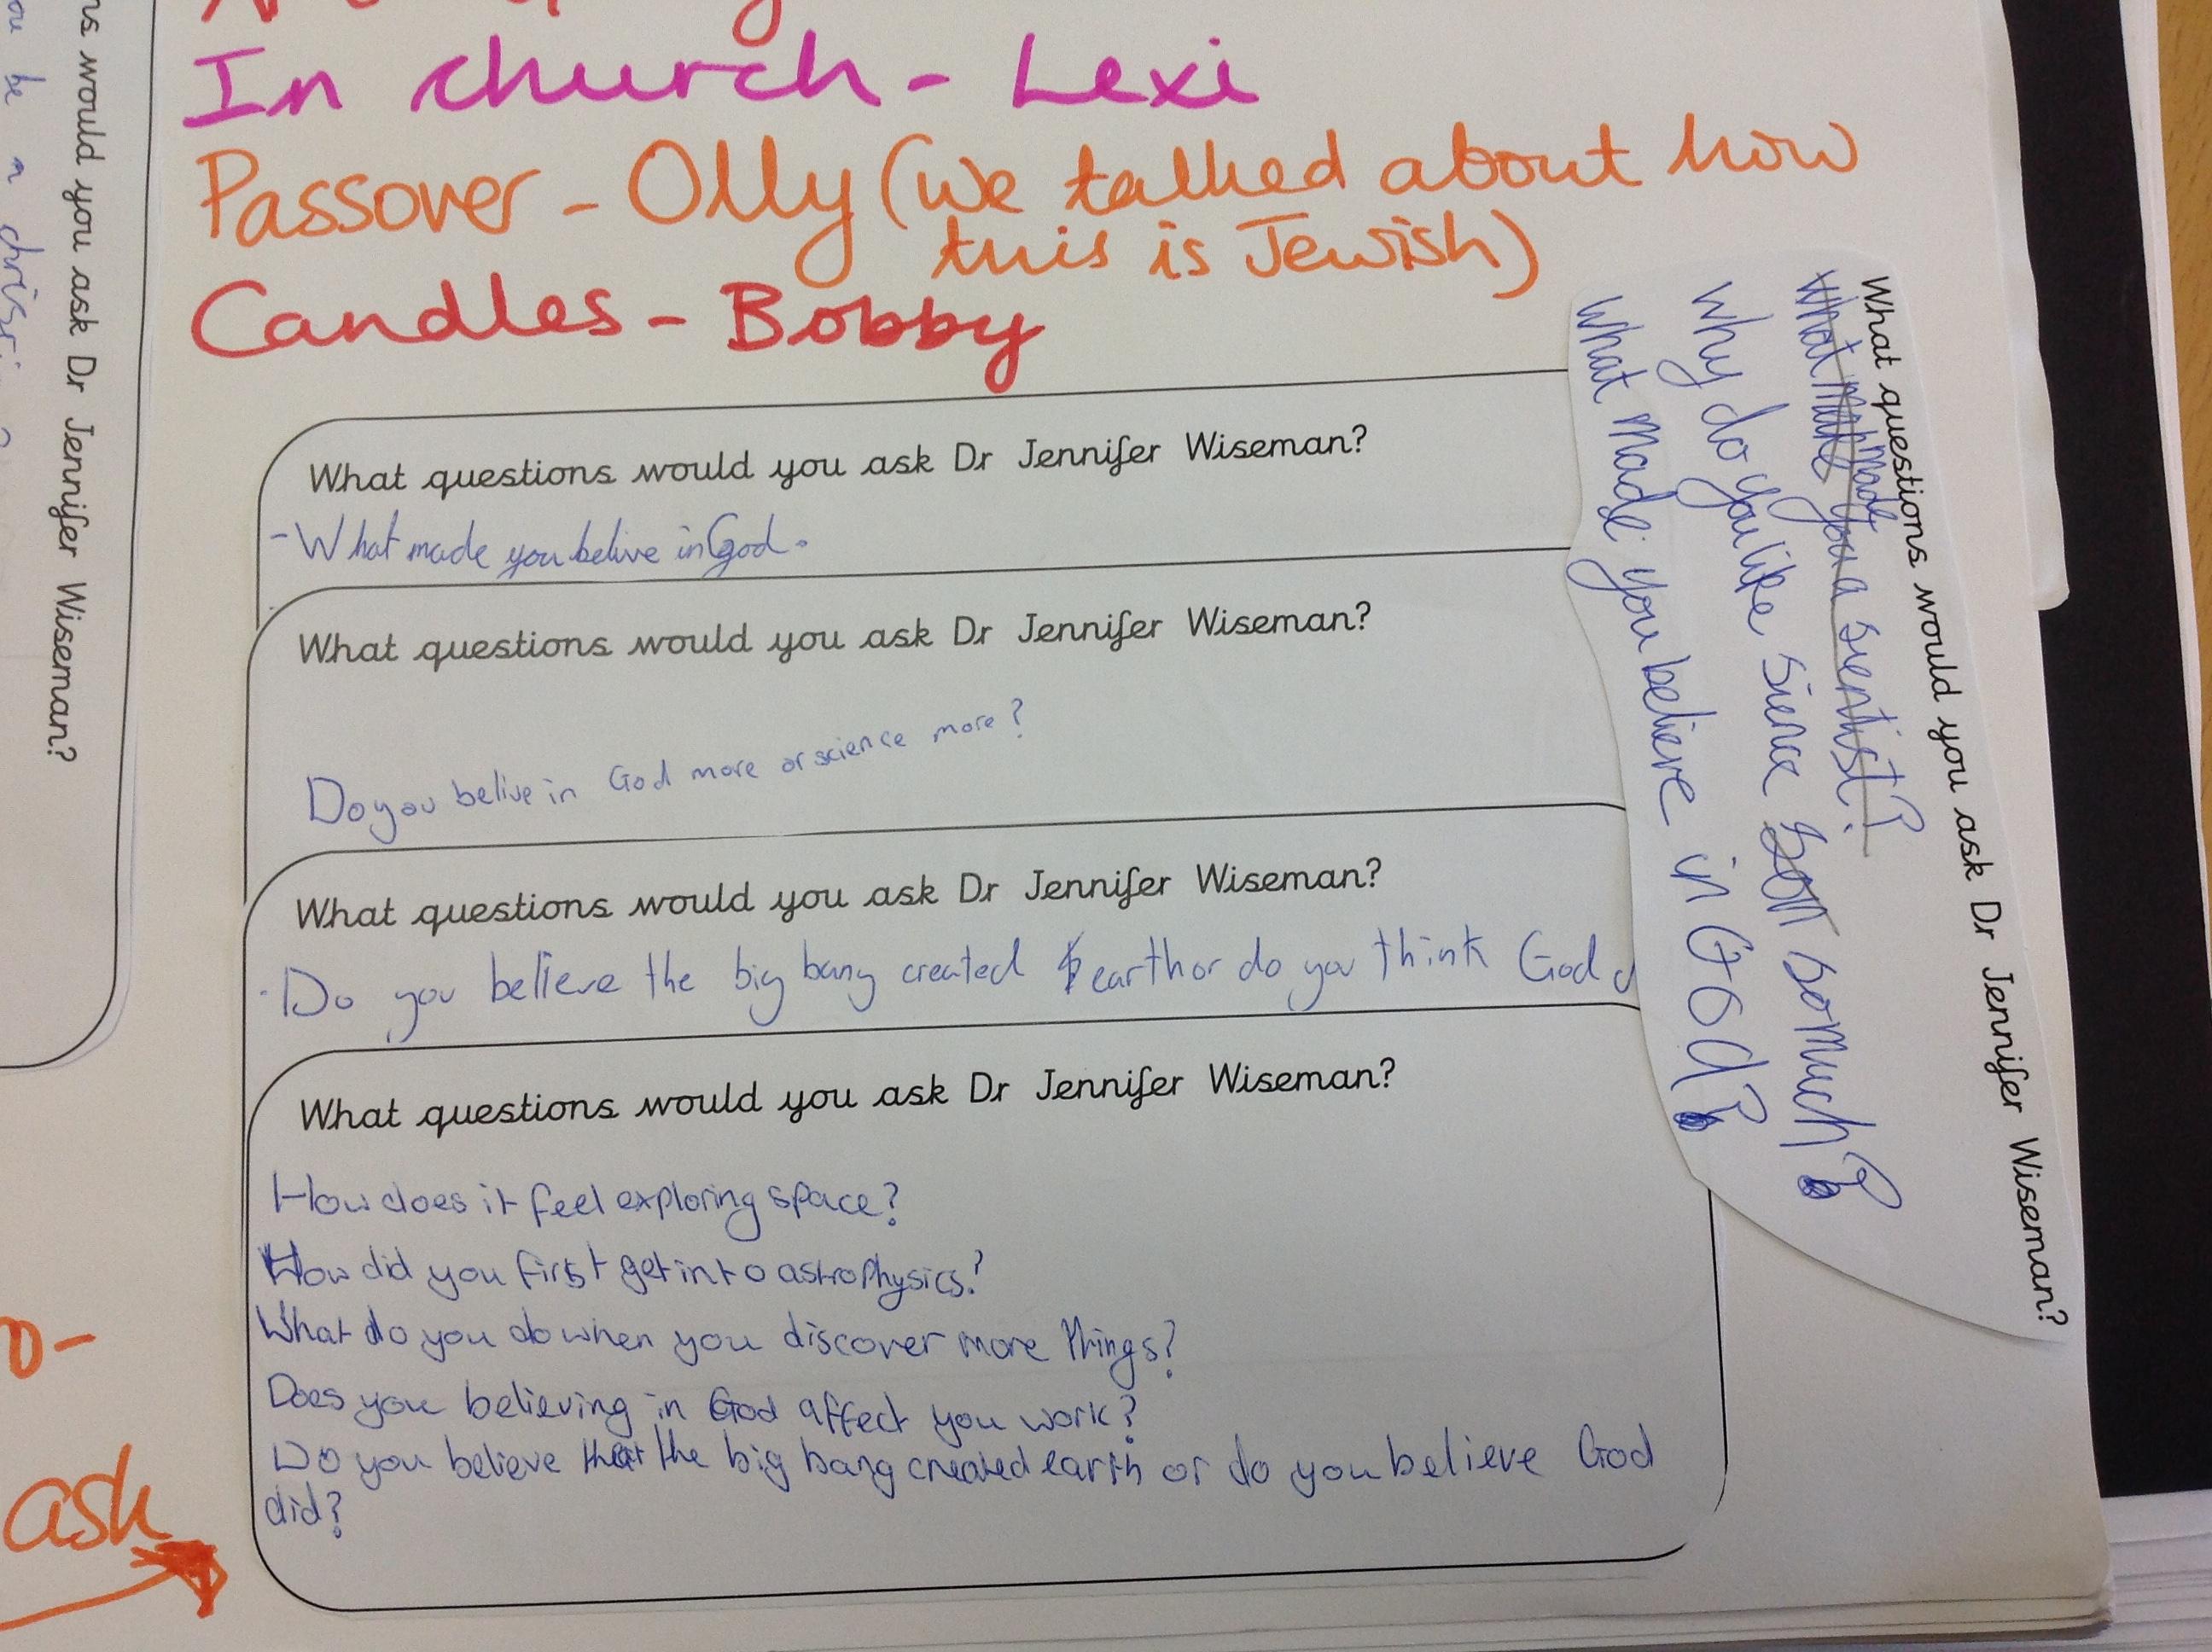 In church - Lexi
Passover - Olly (we talked about how
this is Jewish)
Candles - Bobby
What questions would you ask Dr Jennifer Wiseman?
- What made you belive in God.
What questions would you ask Dr Jennifer Wiseman?
Do you belive in God more or science more?
What questions would you ask Dr Jennifer Wiseman?
· Do you believe the big bang created earth or do you think God
What questions would you ask Dr Jennifer Wiseman?
How does it feel exploring space?
How did you first get into astrophysics?
What do you do when you discover more things?
Does you believing in God affect you work?
Do you believe that the big bang created earth or do you believe God
did?
What questions would you ask Dr Jennifer Wiseman?
What made you a sientist?
Why do you like sience so much?
What made you believe in God?
ns would you ask Dr Jennifer Wiseman?
ou be a chris
0-
ask